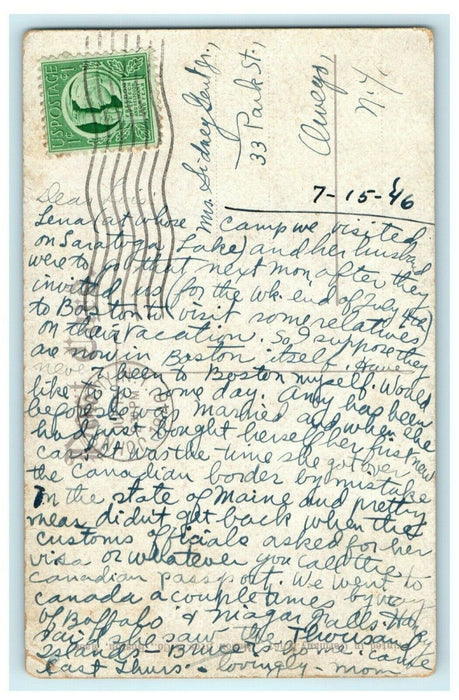 U.S. POSTAGE
1¢
Mrs. Sidney Gent Jr.,
33 Park St.,
Owego,
N.Y.
7-15-46
Dear
Lena (at whose camp we visited
on Saratoga Lake) and her husband
were to go that next mon. after they
invited us (for the wk. end of July 4th)
to Boston to visit some relatives
on their vacation. So I suppose they
are now in Boston itself. Have
never been to Boston myself. Would
like to go some day. Amy has been
before she was married and when she
had just bought herself her first new
car. It was the time she got over
the Canadian border by mistake
in the state of Maine and pretty
near didn't get back when the
customs officials asked for her
visa or whatever you call the
Canadian passport. We went to
Canada a couple times by way
of Buffalo & Niagara Falls.
said she saw the Thousand
Islands. came
last Thurs. - lovingly - mom